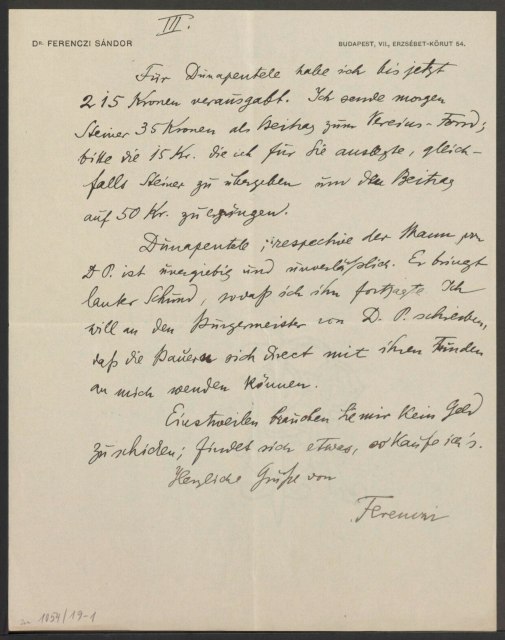 III.
Dr. FERENCZI SÁNDOR
BUDAPEST, VII., ERZSÉBET-KÖRUT 54.
Für Dunapentele habe ich bis jetzt
215 Kronen verausgabt. Ich sende morgen
Steiner 35 Kronen als Beitrag zum Vereins-Fond;
bitte die 15 Kr. die ich für Sie auslegte, gleich-
falls Steiner zu übergeben um den Beitrag
auf 50 Kr. zu ergänzen.
Dunapentele, respective der Mann von
D. P. ist unergiebig und unverläßlich. Er bringt
lauter Schund, sodaß ich ihn fortjagte. Ich
will an den Burgermeister von D. P. schreiben,
daß die Bauern sich direct mit ihren Funden
an mich wenden können.
Einstweilen brauchen Sie mir kein Geld
zu schicken; findet sich etwas, so kaufe ich's.
Herzliche Grüße von
Ferenczi
1054/19-1